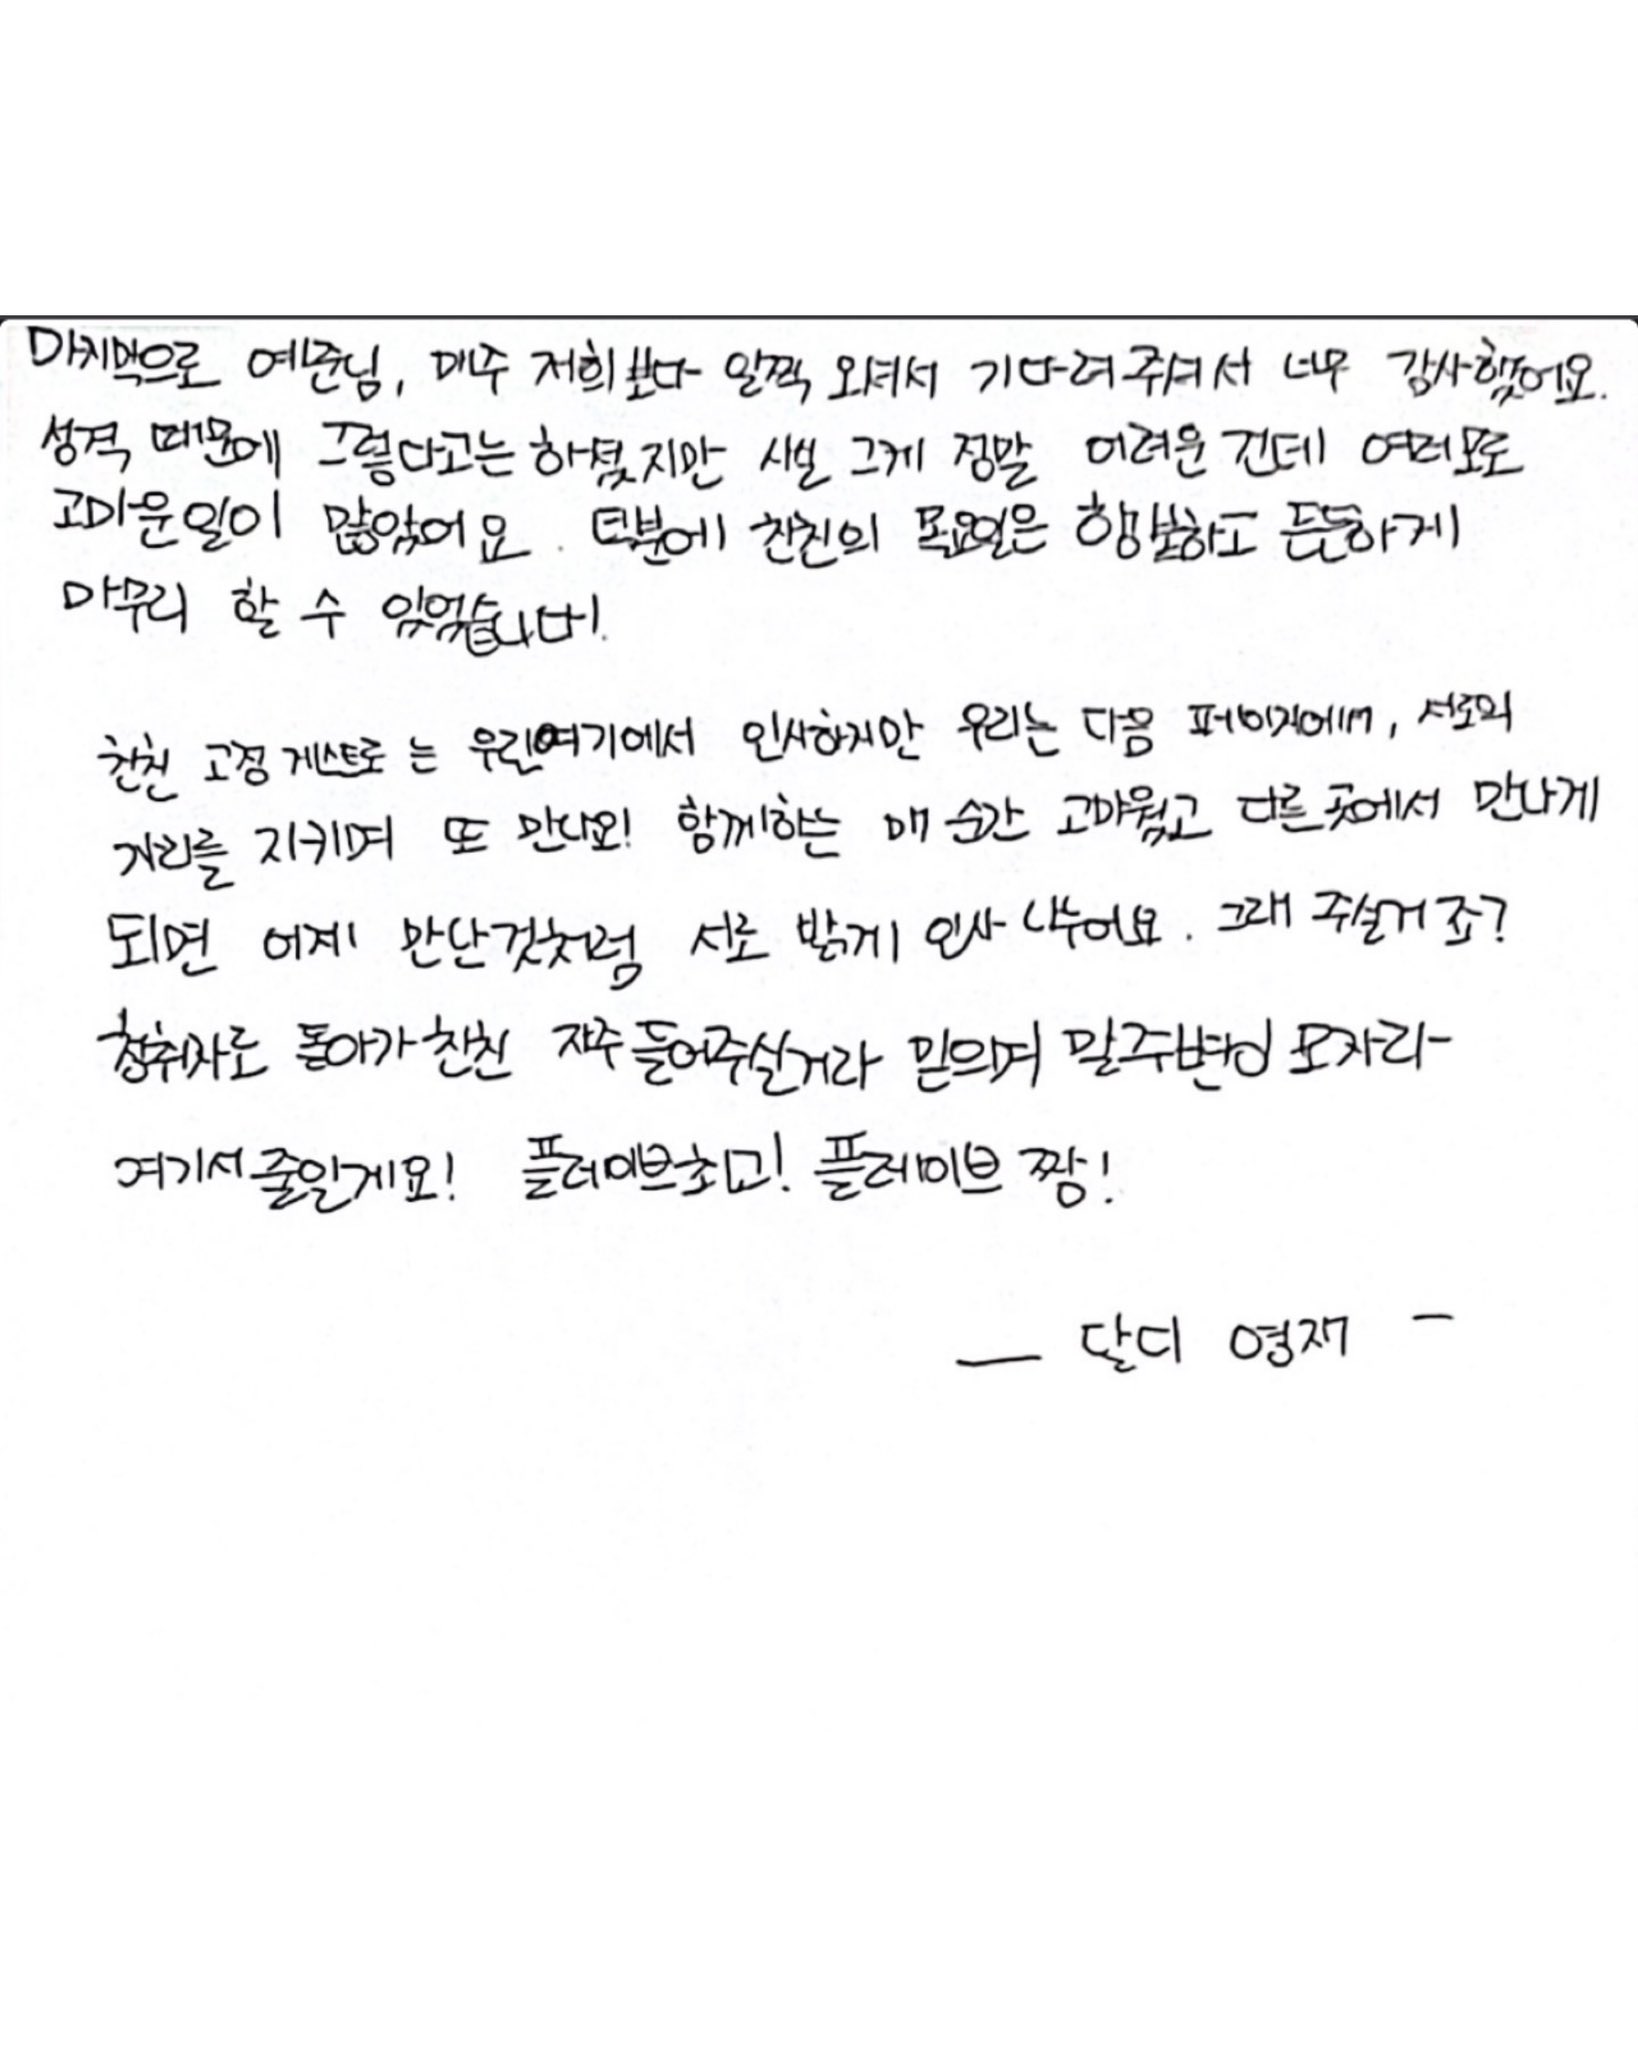 마지막으로 예준님, 매주 저희보다 일찍 오셔서 기다려주셔서 너무 감사했어요.
성격 때문에 그렇다고는 하셨지만 사실 그게 정말 어려운 건데 여러모로
고마운 일이 많았어요. 덕분에 친친의 목요일은 행복하고 든든하게
마무리 할 수 있었습니다.
친친 고정 게스트로는 우린 여기에서 인사하지만 우리는 다음 페이지에서, 서로의
자리를 지키며 또 만나요! 함께하는 매 순간 고마웠고 다른 곳에서 만나게
되면 어제 만난것처럼 서로 밝게 인사 나누어요. 그래 주실거죠?
청취자로 돌아가 친친 자주 들어주실거라 믿으며 말주변이 모자라
여기서 줄일게요! 플레이브 최고! 플레이브 짱!
— 달디 영재 -